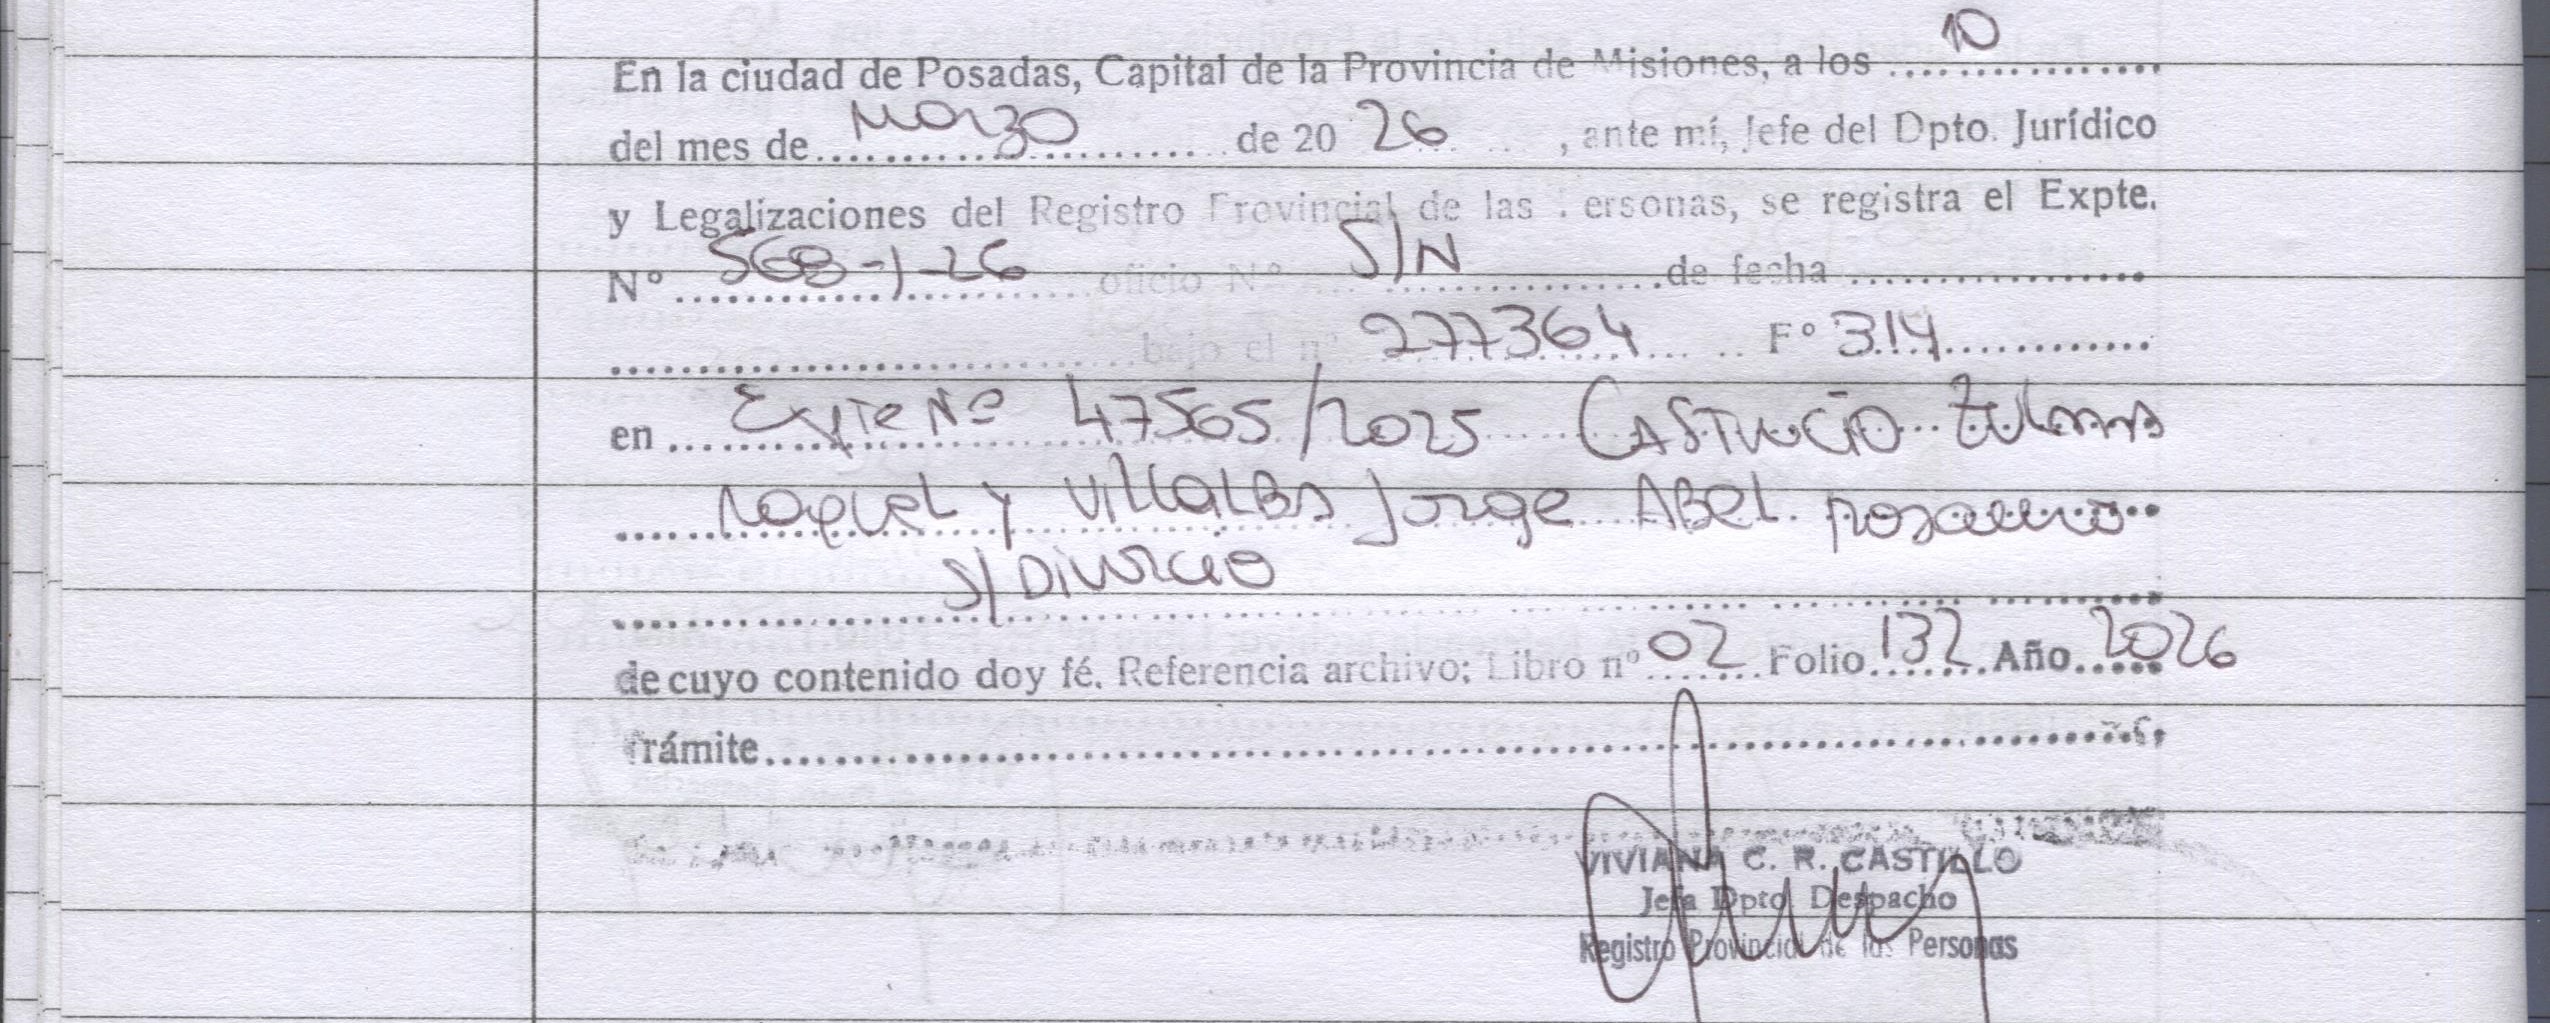 En la ciudad de Posadas, Capital de la Provincia de Misiones, a los 10
del mes de Marzo de 20 26, ante mí, Jefe del Dpto. Jurídico
y Legalizaciones del Registro Provincial de las Personas, se registra el Expte.
Nº 568-J-26 oficio Nº S/N de fecha
bajo el nº 277364 Fº 314
en Expte Nº 47565/2025 CASTRUCIO Zulema
Raquel y VillalBa Jorge ABel
S/ Divorcio
de cuyo contenido doy fé. Referencia archivo: Libro nº 02 Folio 132 Año 2026
Trámite
VIVIANA C. R. CASTILLO
Jefa Dpto Despacho
Registro Provincial de las Personas